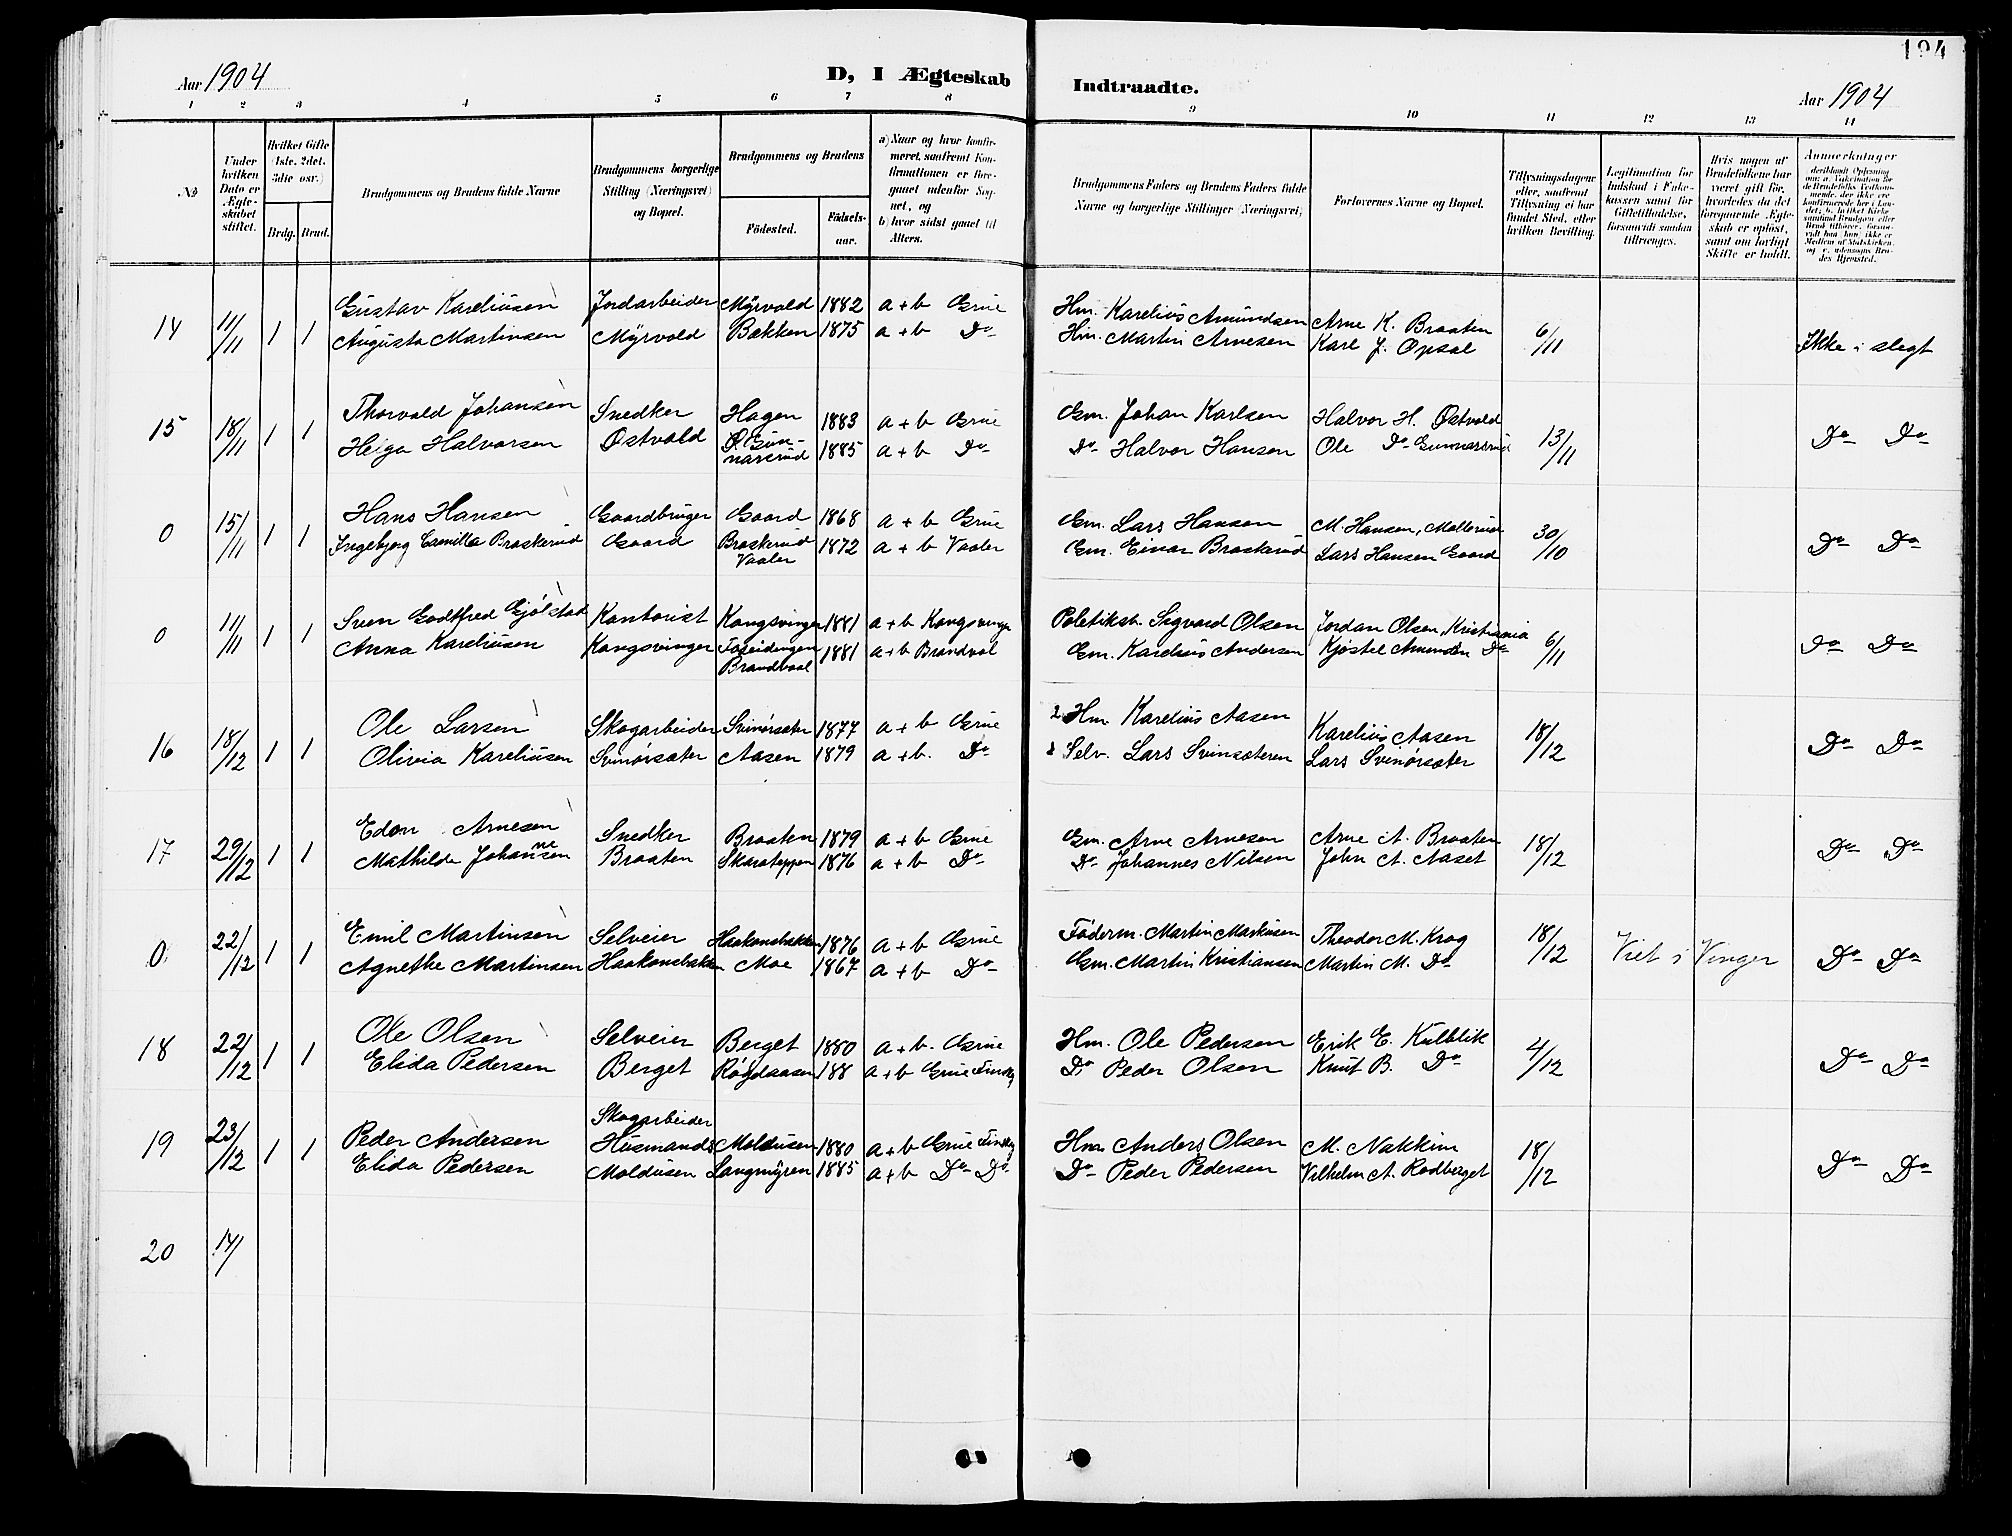 194
Aar 1904
D, I Ægteskab
Indtraadte.
Aar 1904
1 2 3 4 5 6 7 8 9 10 11 12 13 14
No
Under hvilken Dato er Ægteskabet stiftet.
Hvilket Gifte (1ste, 2det, 3die osv.)
Brdg. Brud.
Brudgommens og Brudens fulde Navne
Brudgommens borgerlige Stilling (Næringsvei) og Bopæl.
Brudgommens og Brudens
Födested.
Födselsaar.
a) Naar og hvor konfirmeret, saafremt Konfirmationen er foregaaet udenfor Sognet, og
b) hvor sidst gaaet til Alters.
Brudgommens Faders og Brudens Faders fulde Navne og borgerlige Stillinger (Næringsvei)
Forlovernes Navne og Bopæl.
Tillysningsdagene eller, saafremt Tillysning ei har fundet Sted, efter hvilken Bevilling.
Legitimation for Indskud i Enkekassen samt for Giftetilladelse, forsaavidt saadan tiltrænges.
Hvis nogen af Brudefolkene har været gift för, hvorledes da det foregaaende Ægteskab er oplöst, samt om lovligt Skifte er holdt.
Anmerkninger
14 11/11 1 1 Gustav Kareliusen Jordarbeider Myrvold 1882 a + b Grue Hm. Karelius Amundsen Arne K. Braaten 6/11 Ikke i slegt
Augusta Martinsen Myrvold Bakken 1875 a + b Do Hm. Martin Arnesen Karl J. Opsal
15 18/11 1 1 Thorvald Johansen Snedker Hagen 1883 a + b Grue Gm. Johan Karlsen Halvor H. Østvold 13/11 Do Do
Helga Halvorsen Østvold Ø. Gunnarsrud 1885 a + b Do Do Halvor Hansen Ole Do Gunnarsrud
0 15/11 1 1 Hans Hansen Gaardbruger Gaard 1868 a + b Grue Gm. Lars Hansen M. Hansen, Mallerud 30/10 Do Do
Ingebjørg Camilla Braskerud Gaard Braskerud Vaaler 1872 a + b Vaaler Gm. Einar Braskerud Lars Hansen Gaard
0 11/11 1 1 Sven Godtfred Gjølstad Kontorist Kongsvinger 1881 a + b Kongsvinger Politikst. Sigvard Olsen Jordan Olsen, Kristiania 6/11 Do Do
Anna Kareliusen Kongsvinger Brandval 1881 a + b Brandval Gm. Karelius Andersen Kjøstel Amundsen Do
16 18/12 1 1 Ole Larsen Skogarbeider Svinørsæter 1877 a + b Grue 2 Hm Karelius Aasen Karelius Aasen 18/12 Do Do
Olivia Kareliusen Svinørsæter Aasen 1879 a + b. Do 1 Selv. Lars Svinsæteren Lars Svinørsæter
17 29/12 1 1 Edon Arnesen Snedker Braaten 1879 a + b Grue Gm. Arne Arnesen Arne A. Braaten 18/12 Do Do
Mathilde Johannesen Braaten Skarateppen 1876 a + b Do Do Johannes Nilsen John A. Aaset
0 22/12 1 1 Emil Martinsen Selveier Haakonsbakken 1876 a + b Grue Föderm. Martin Markusen Theodor M. Krog 18/12 Viet i Vinger Do Do
Agnethe Martinsen Haakonsbakken Moe 1867 a + b Do Gm. Martin Kristiansen Martin M. Do
18 22/12 1 1 Ole Olsen Selveier Berget 1880 a + b. Grue Hm. Ole Pedersen Erik E. Kulblik 4/12 Do Do
Elida Pedersen Berget Røgdaasen 188 a + b Grue Finskg Do Peder Olsen Knut B. Do
19 23/12 1 1 Peder Andersen Skogarbeider Husmands Moldusen 1880 a + b Grue Finskg Hm Anders Olsen M. Nakkim 18/12 Do Do
Elida Pedersen Moldusen Langmyren 1885 a + b Do Do Do Peder Pedersen Vilhelm A. Rodberget
20 14/